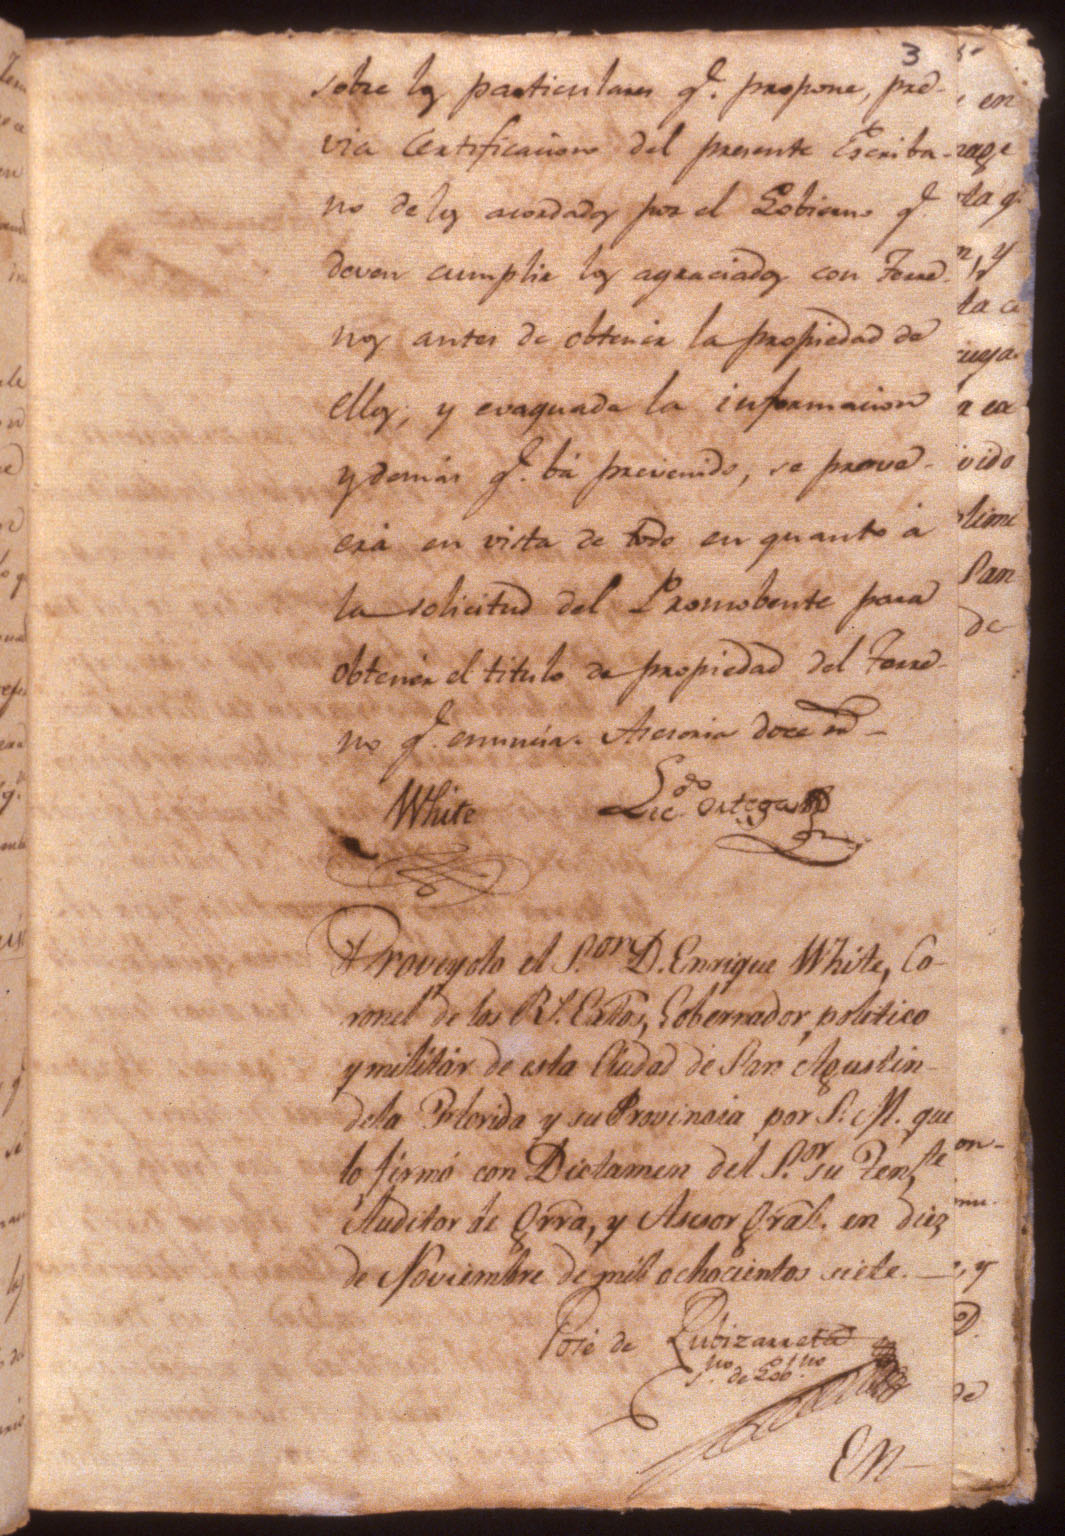 3
sobre los particulares q.e propone, pre-
via certificacion del presente Escriba-
no de los acordados por el Gobierno q.e
deven cumplir los agraciados con Terre-
nos antes de obtener la propiedad de
ellos; y evaquada la informacion
y demás q.e bá prevenido, se prove-
erá en vista de todo en quanto á
la solicitud del Promobente para
obtener el titulo de propiedad del Terre-
no q.e enuncia. Asesoria doce rd -
White Lic.do Ortega
Proveyolo el S.or D. Enrique White, Co-
ronel de los R.s Extos, Gobernador politico
y militár de esta Ciudad de San Agustin
dela Florida y su Provincia por S. M. que
lo firmó con Dictamen del S.or su Ten.te
Auditor de Grra, y Asesor Gral. en diez
de Noviembre de mil ochocientos siete. —
José de Zubizarreta
S.no de Gob.no
En